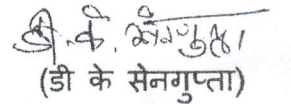 डी. के. सेनगुप्ता
(डी के सेनगुप्ता)